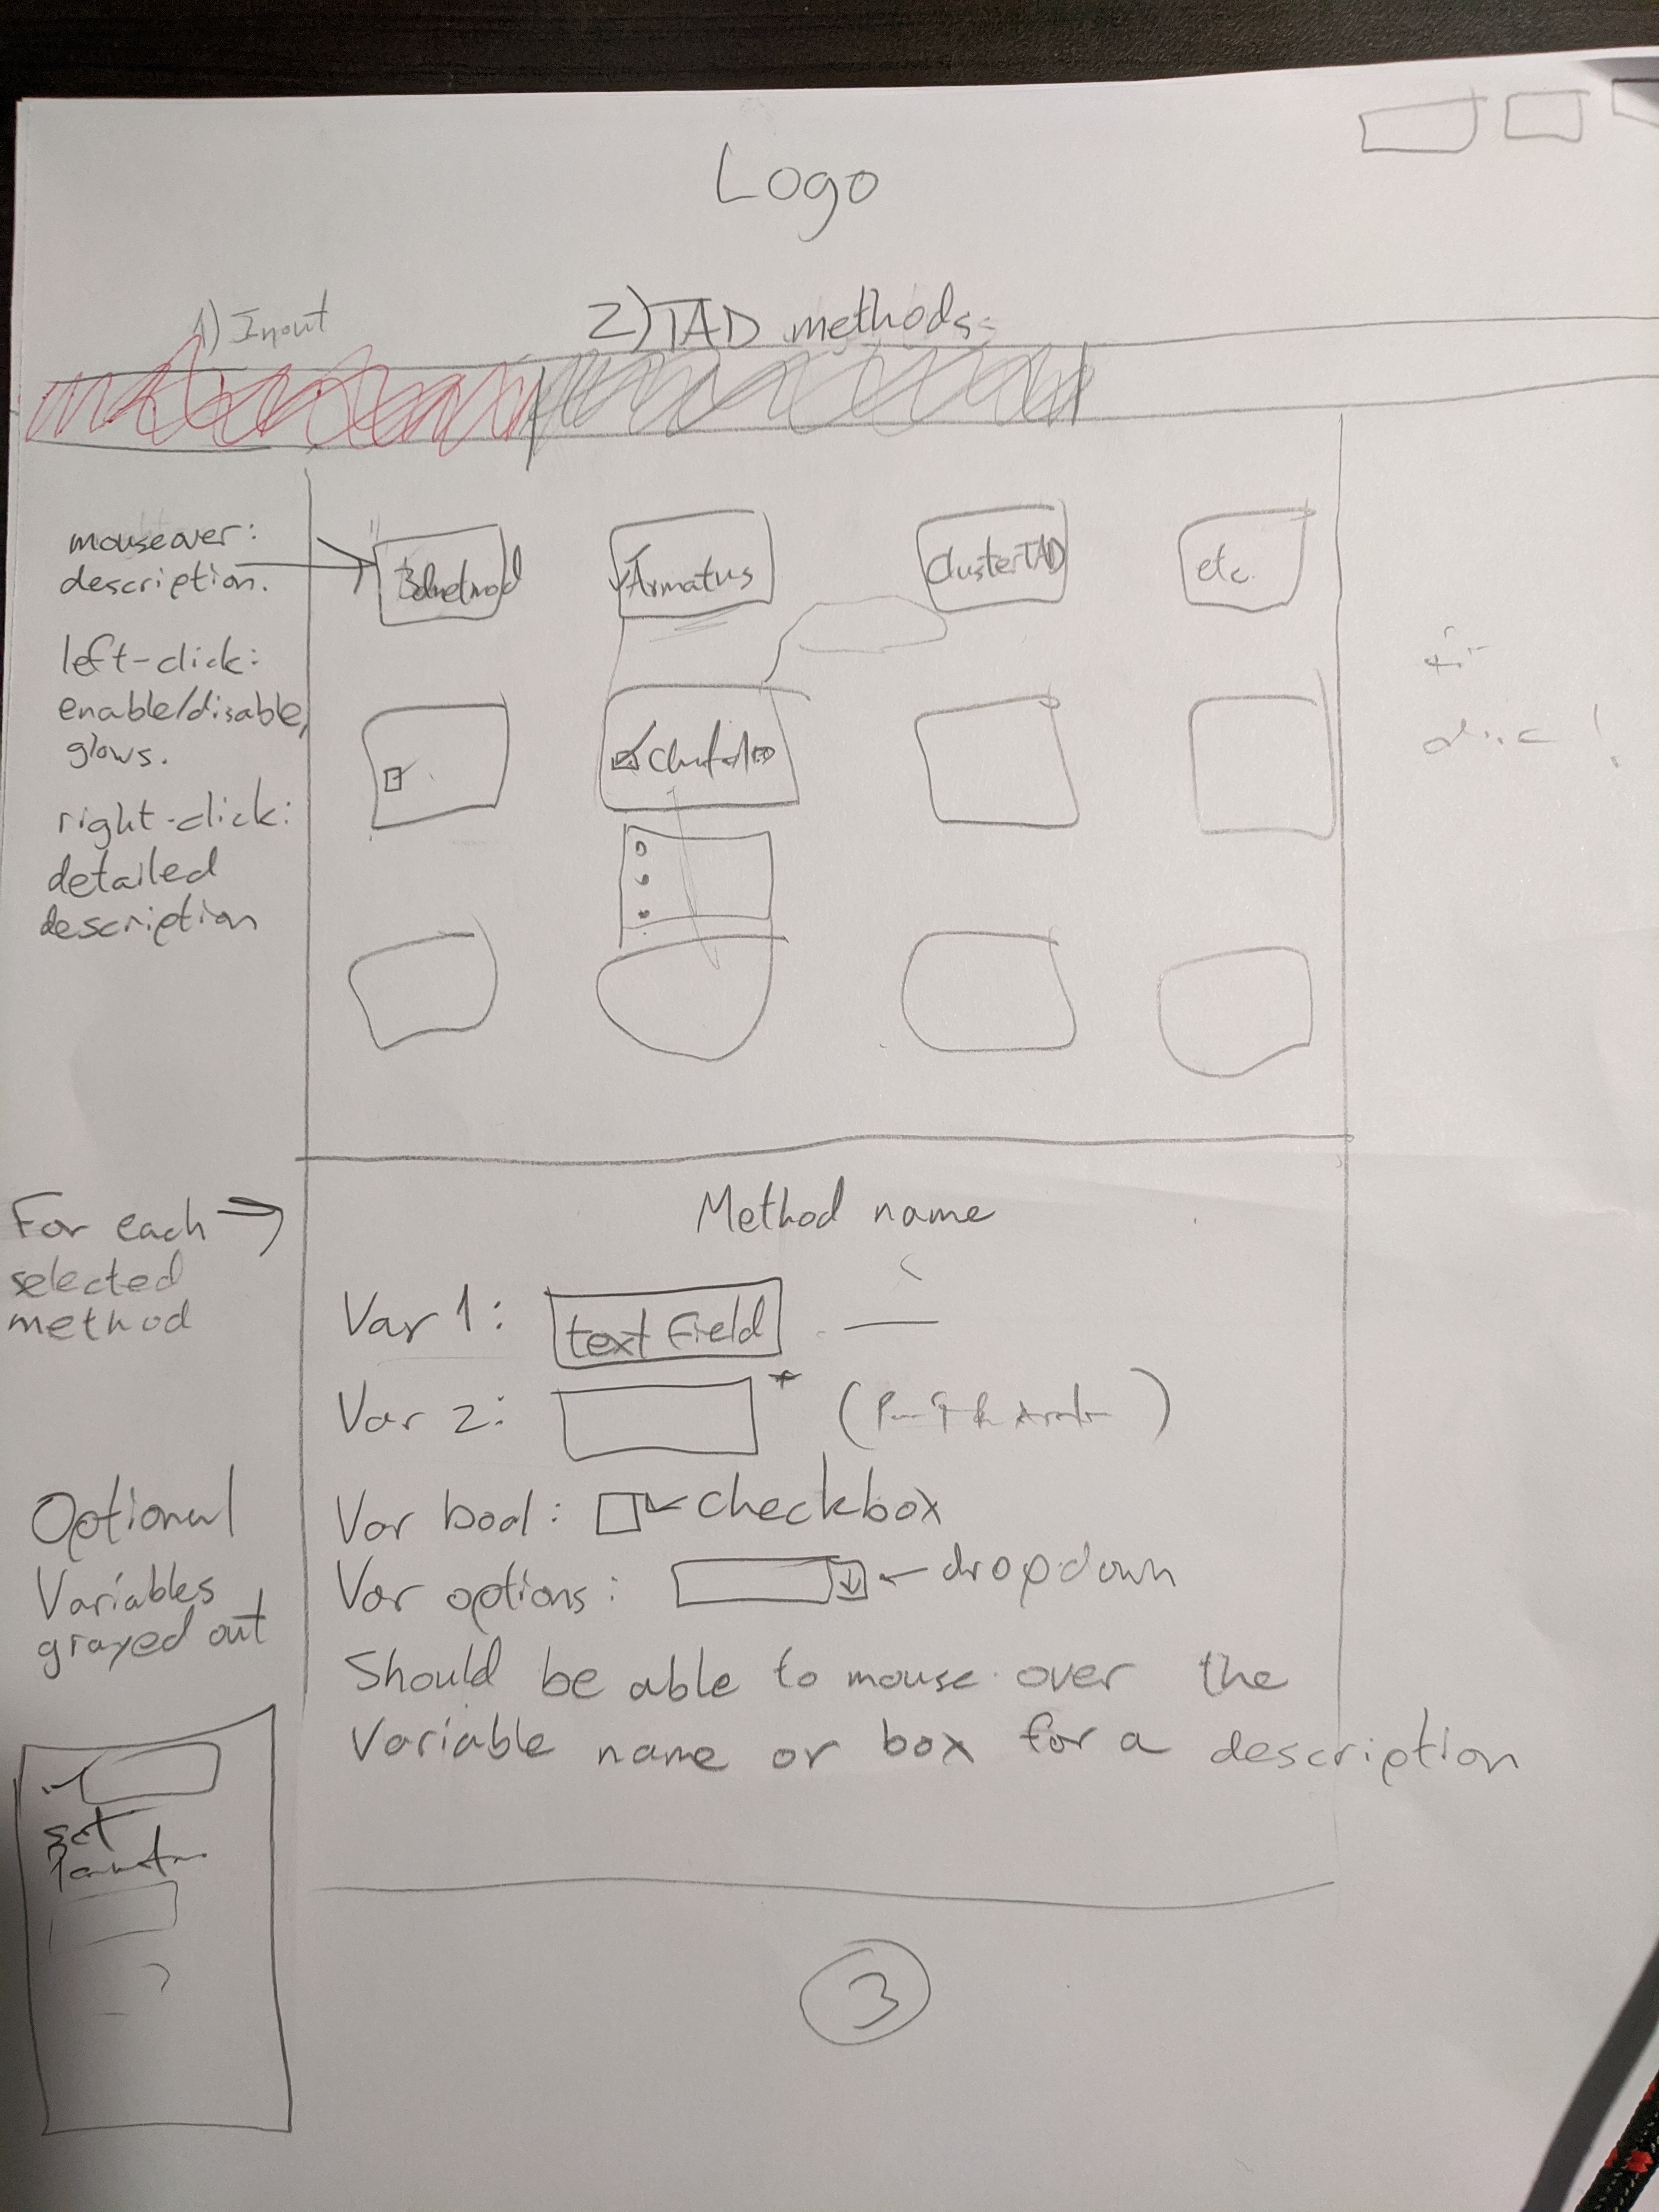 Logo
1) Input
2) TAD methods:
mouseover:
description.
left-click:
enable/disable,
glows.
right-click:
detailed
description
Armatus
ClusterTAD
etc.
For each
selected
method
Method name
Var 1: text field
Var 2: * ( )
Var bool: checkbox
Var options: dropdown
Should be able to mouse over the
variable name or box for a description
Optional
Variables
grayed out
set
3